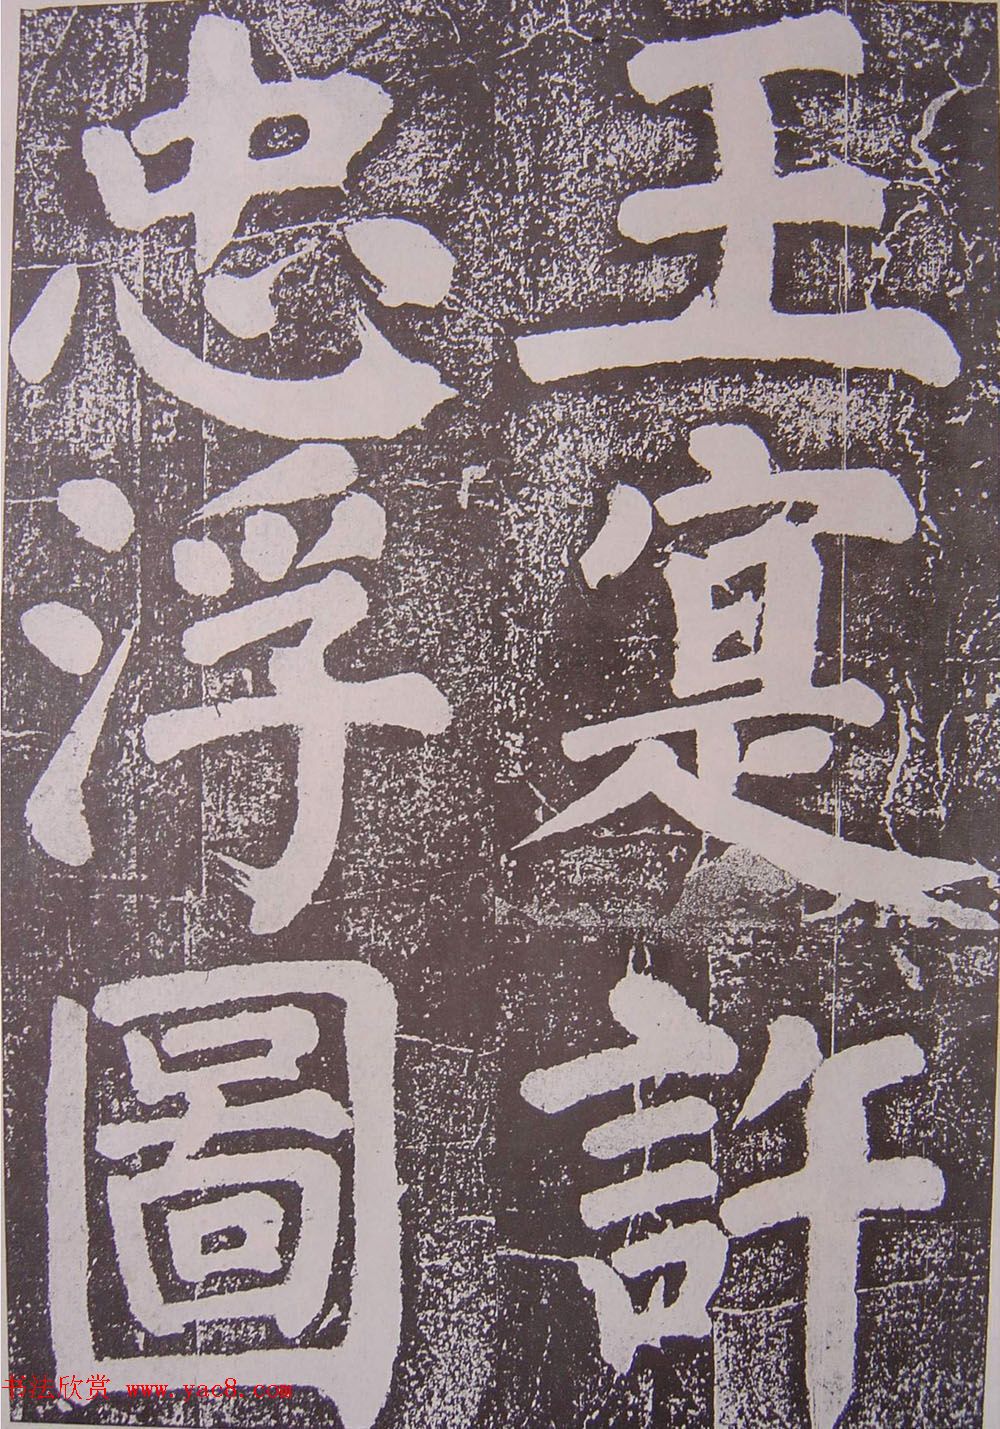 王寔許
忠浮圖
书法欣赏 www.yac8.com